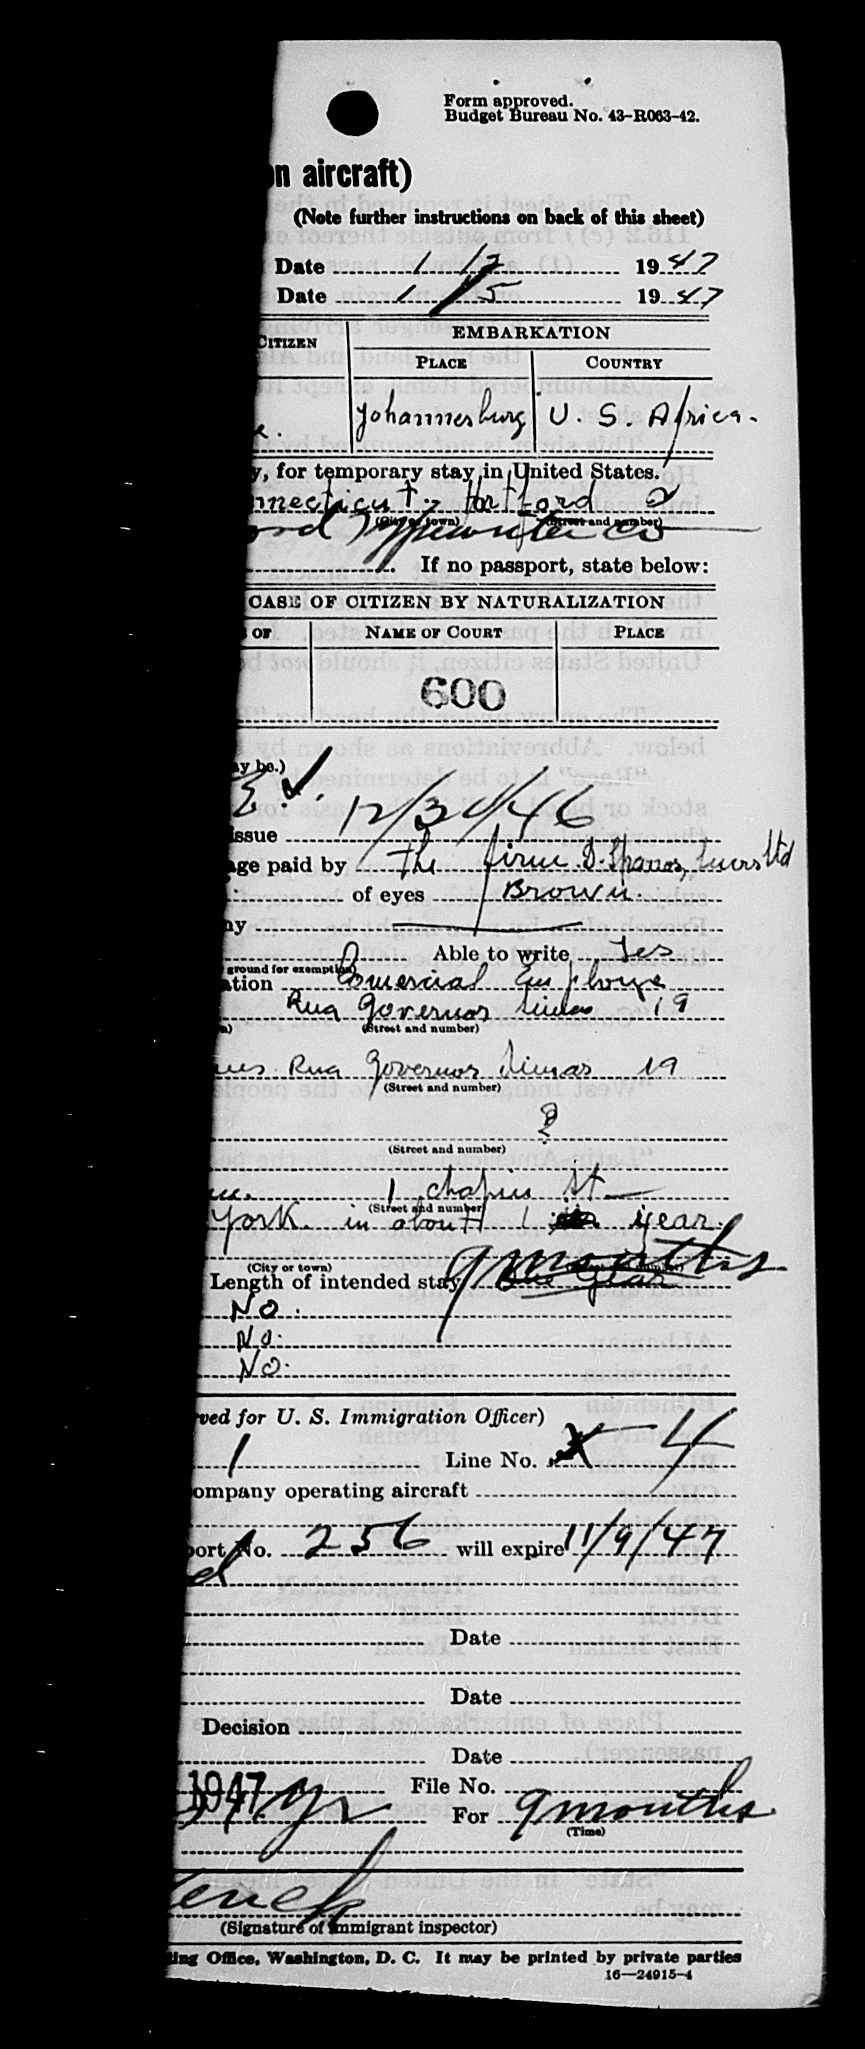 Form approved.
Budget Bureau No. 43-R063-42.
on aircraft)
(Note further instructions on back of this sheet)
Date 1/2 1947
Date 1/5 1947
CITIZEN
EMBARKATION
PLACE COUNTRY
Johannesburg U. S. Africa.
y, for temporary stay in United States.
nnecticut - Hartford
(City or town) (Street and number)
Typewriter Co
If no passport, state below:
CASE OF CITIZEN BY NATURALIZATION
OF NAME OF COURT PLACE
600
ay be.)
issue 12/30/46
age paid by The firm D. Spanos, Ltd
of eyes Brown.
ny
Able to write Yes
ground for exemption)
ation Comercial Employe
Rua Governor 19
(Street and number)
Rua Governor Simas 19
(Street and number)
?
(Street and number)
1 chapin St
(Street and number)
York in about 1 year.
9 months
(City or town)
Length of intended stay One Year
No.
No.
No.
ved for U. S. Immigration Officer)
1 Line No. 4
ompany operating aircraft
port No. 256 will expire 11/9/47
Date
Date
Decision
Date
1947 File No.
1 yr For 9 months
(Time)
(Signature of immigrant inspector)
ing Office, Washington, D. C. It may be printed by private parties
16—24915-4